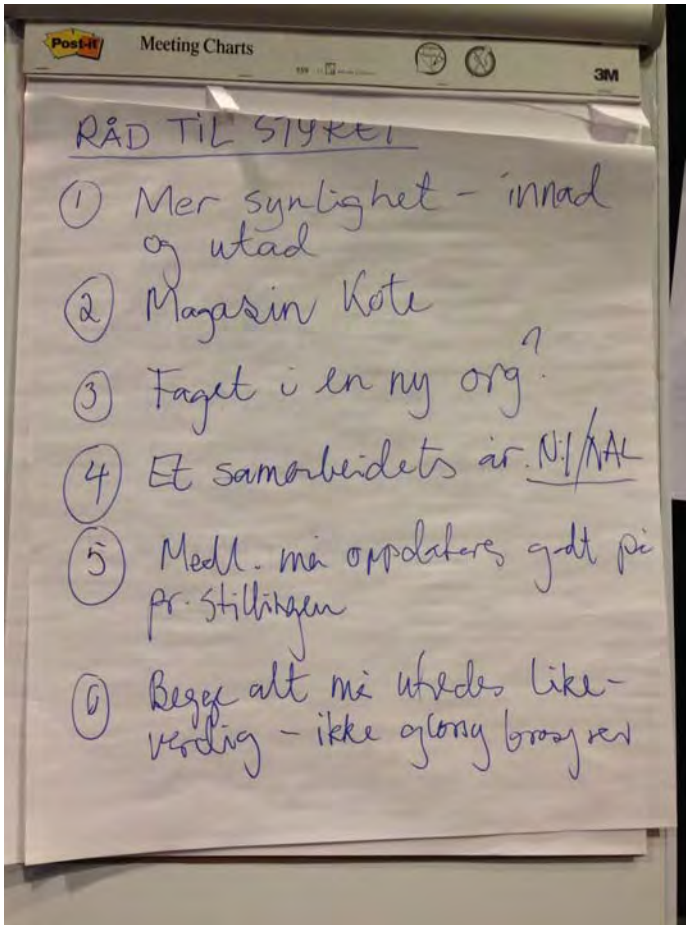 Post-it
Meeting Charts
3M
RÅD TIL STYRET
1 Mer synlighet - innad
og utad
2 Magasin Kote
3 Faget i en ny org?
4 Et samarbeidets år. NIL/NAL
5 Medl. må oppdateres godt på
pr. stillingen
6 Begge alt må utredes like-
verdig - ikke glossy brosjyrer